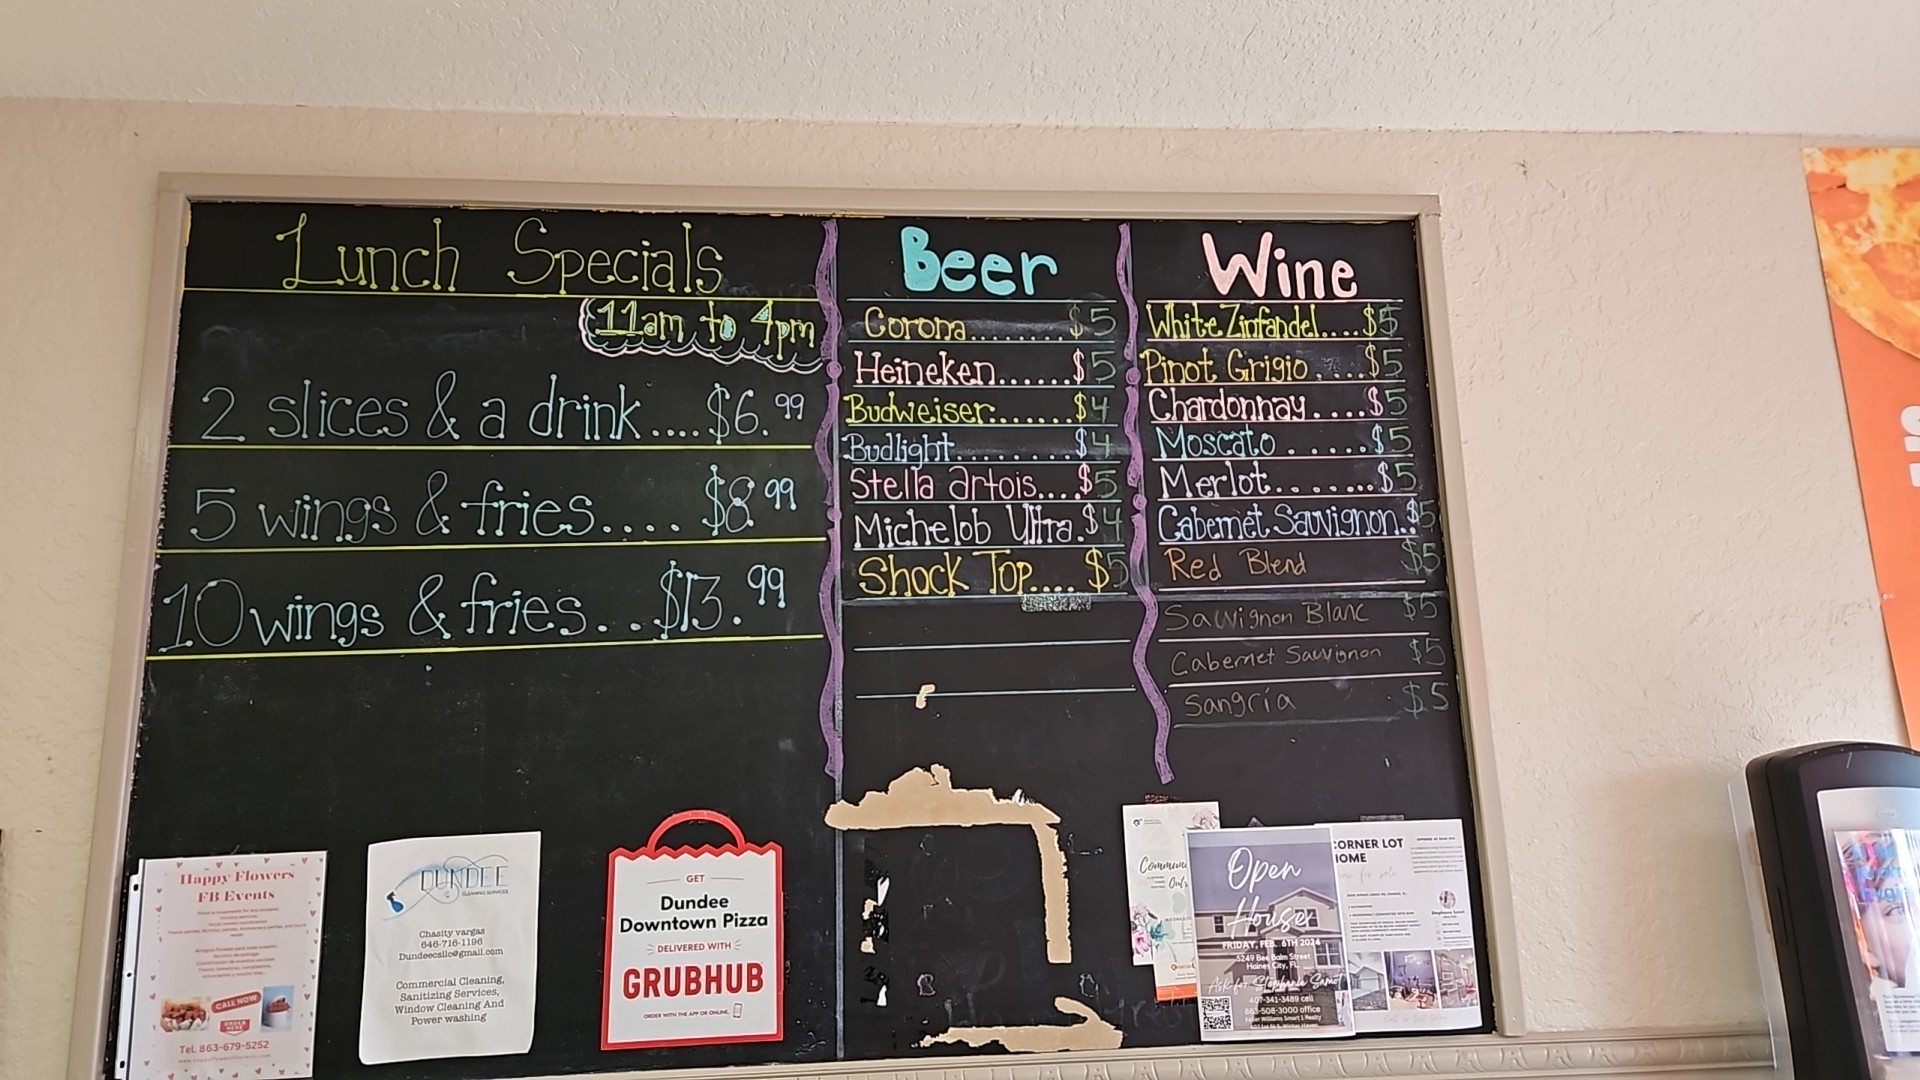 Lunch Specials
11am to 4pm
2 slices & a drink....$6.99
5 wings & fries.... $8.99
10 wings & fries...$13.99
Beer
Corona........$5
Heineken......$5
Budweiser.......$4
Budlight.........$4
Stella Artois....$5
Michelob Ultra.$4
Shock Top.... $5
Wine
White Zinfandel....$5
Pinot Grigio.....$5
Chardonnay....$5
Moscato......$5
Merlot.......$5
Cabernet Sauvignon.$5
Red Blend $5
Sauvignon Blanc $5
Cabernet Sauvignon $5
Sangria $5
Happy Flowers
FB Events
CALL NOW
ORDER
HERE
Tel. 863-679-5252
DUNDEE
CLEANING SERVICES
Chasity vargas
646-716-1196
Dundeecsllc@gmail.com
Commercial Cleaning,
Sanitizing Services,
Window Cleaning And
Power washing
GET
Dundee
Downtown Pizza
DELIVERED WITH
GRUBHUB
ORDER WITH THE APP OR ONLINE.
Open
House
FRIDAY, FEB. 6TH 2024
5249 Bee Balm Street
Haines City, FL
Ask for Stephanie
407-341-3489 cell
863-508-3000 office
Keller Williams Smart 1 Realty
CORNER LOT
HOME